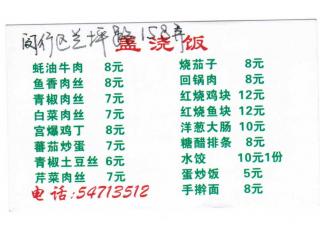 闵行区兰坪路158弄
盖浇饭
蚝油牛肉 8元
鱼香肉丝 8元
青椒肉丝 7元
白菜肉丝 7元
宫爆鸡丁 8元
蕃茄炒蛋 7元
青椒土豆丝 6元
芹菜肉丝 7元
电话:54713512
烧茄子 8元
回锅肉 8元
红烧鸡块 12元
红烧鱼块 12元
洋葱大肠 10元
糖醋排条 8元
水饺 10元1份
蛋炒饭 5元
手擀面 8元